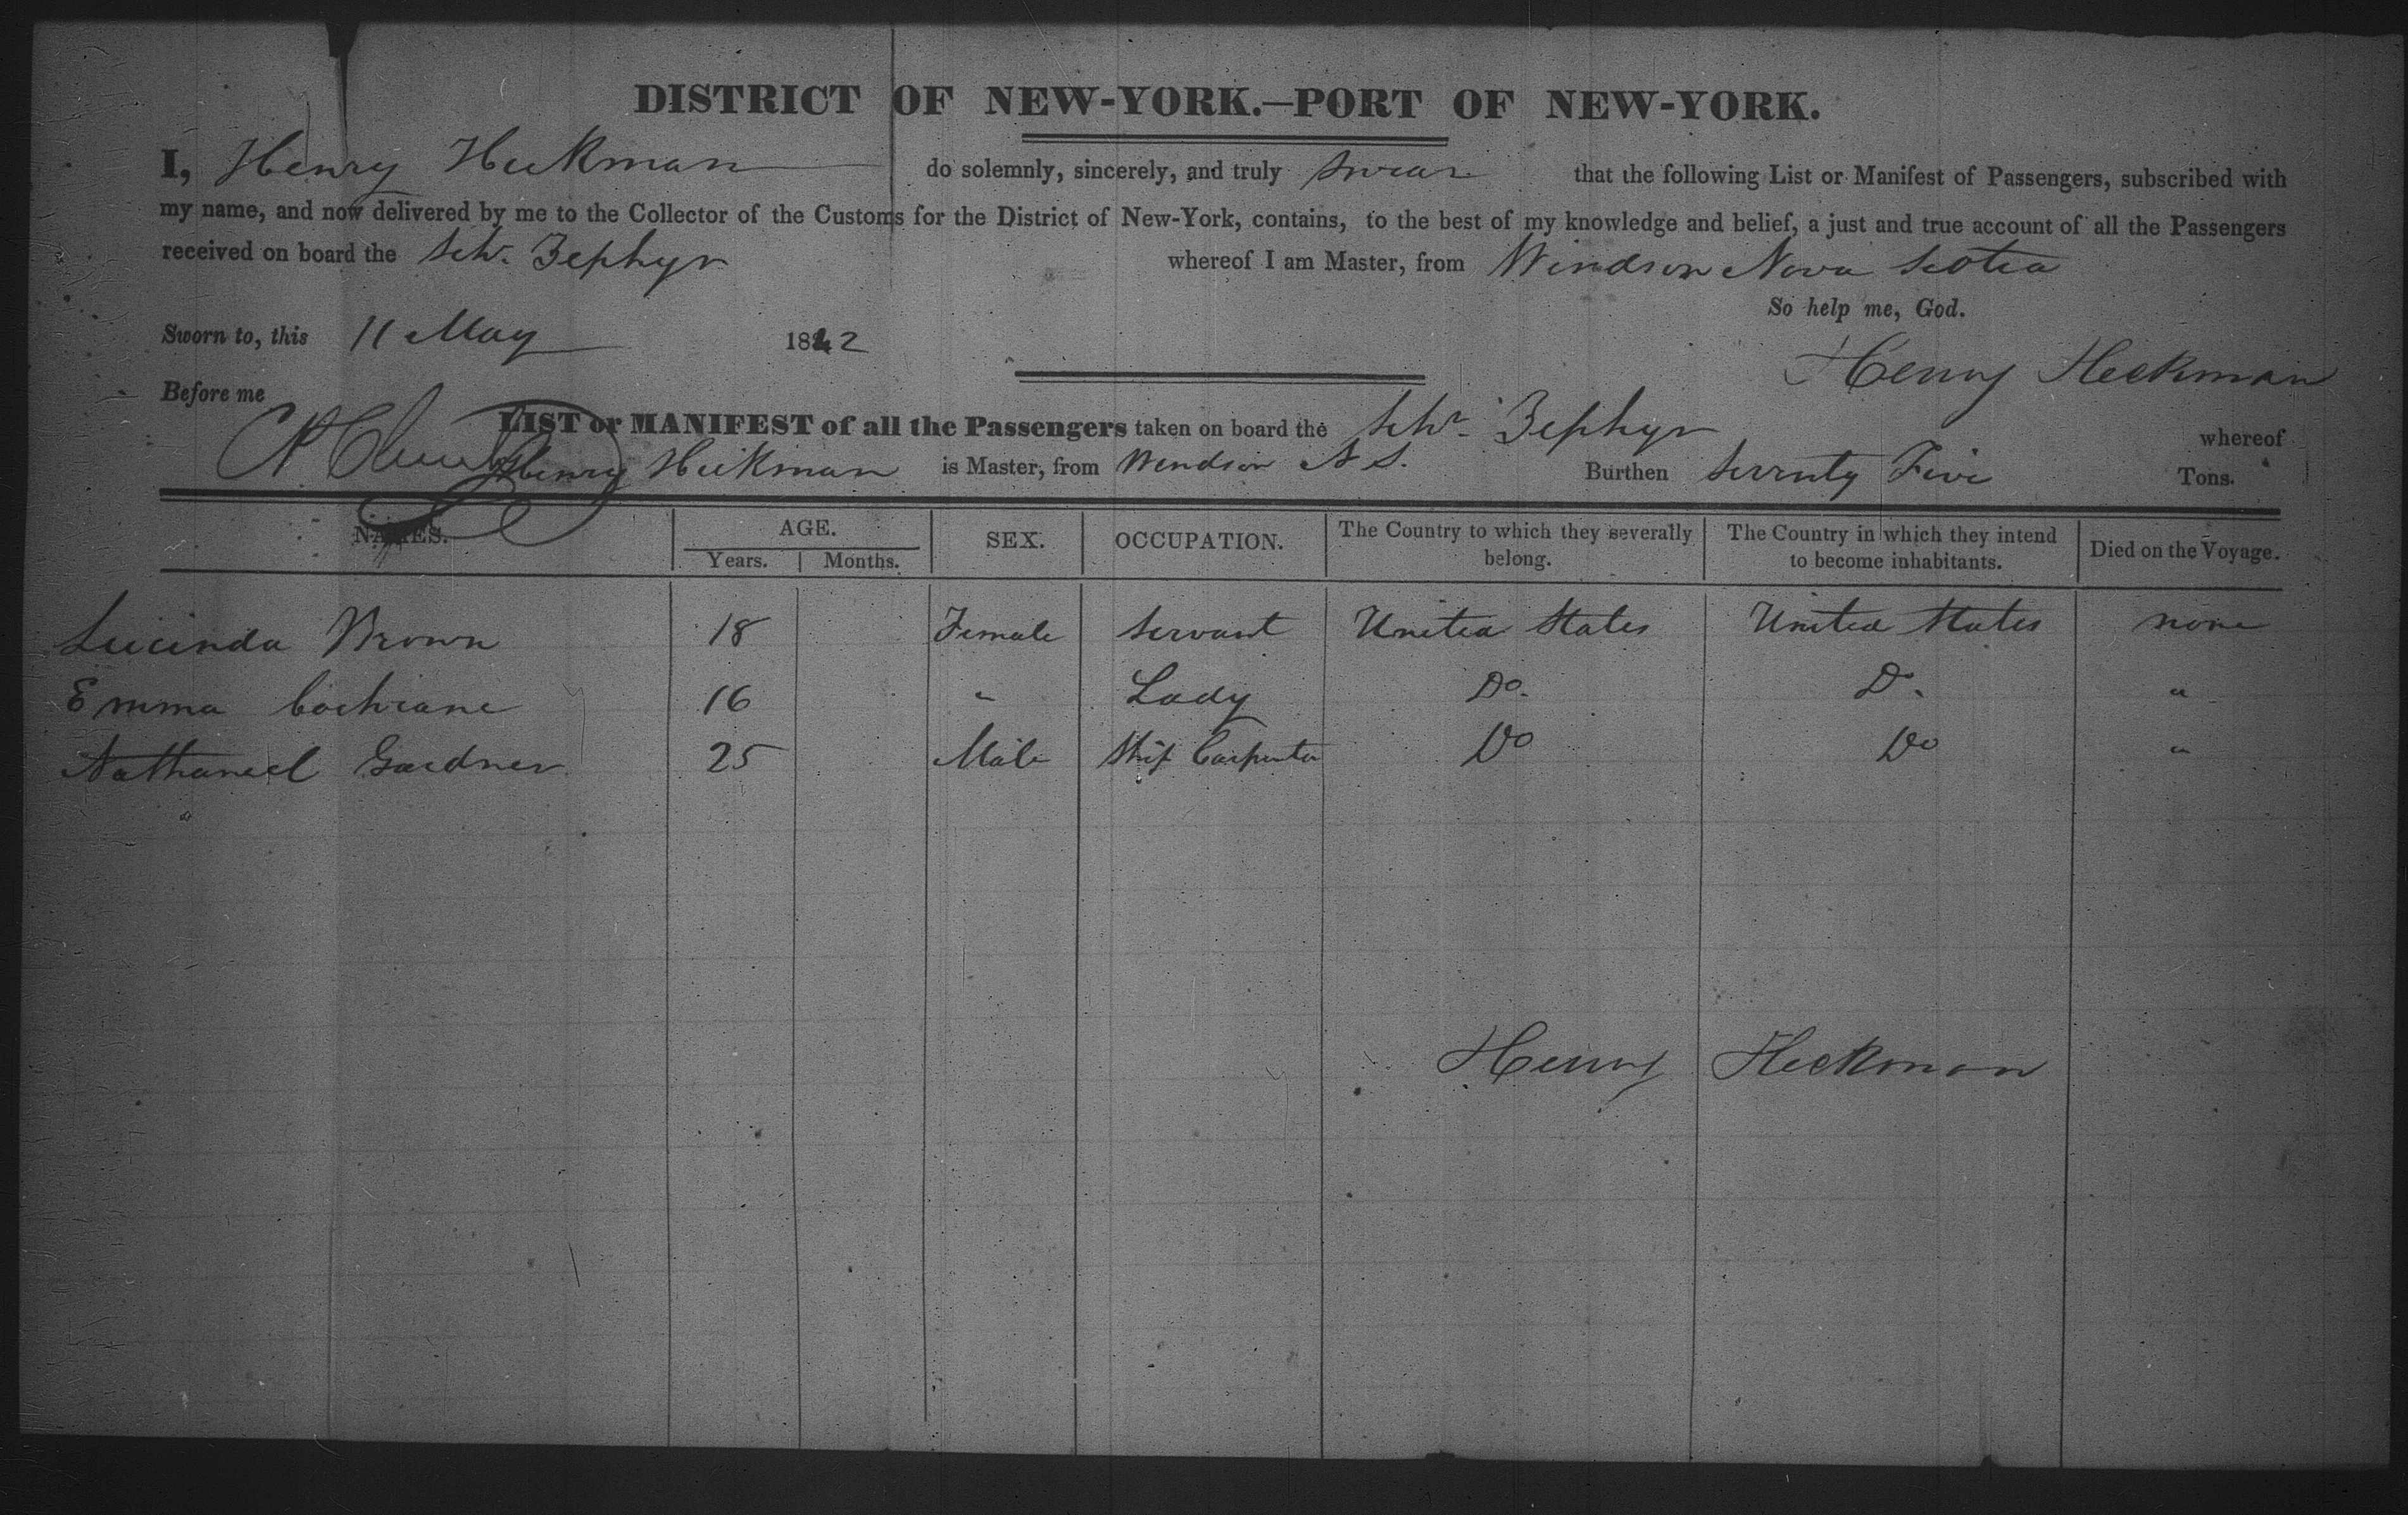 DISTRICT OF NEW-YORK.—PORT OF NEW-YORK.
I, Henry Heckman do solemnly, sincerely, and truly swear that the following List or Manifest of Passengers, subscribed with
my name, and now delivered by me to the Collector of the Customs for the District of New-York, contains, to the best of my knowledge and belief, a just and true account of all the Passengers
received on board the Schr. Zephyr whereof I am Master, from Windsor Nova Scotia
So help me, God.
Sworn to, this 11 May 1842
Henry Heckman
Before me
LIST or MANIFEST of all the Passengers taken on board the Schr. Zephyr whereof
Henry Heckman is Master, from Windsor N S. Burthen Seventy Five Tons.
NAMES. AGE. SEX. OCCUPATION. The Country to which they severally belong. The Country in which they intend to become inhabitants. Died on the Voyage.
Years. Months.
Lucinda Brown 18 Female Servant United States United States none
Emma Cochrane 16 " Lady Do. Do. "
Nathaniel Gardner 25 Male Ship Carpenter Do Do "
Henry Heckman